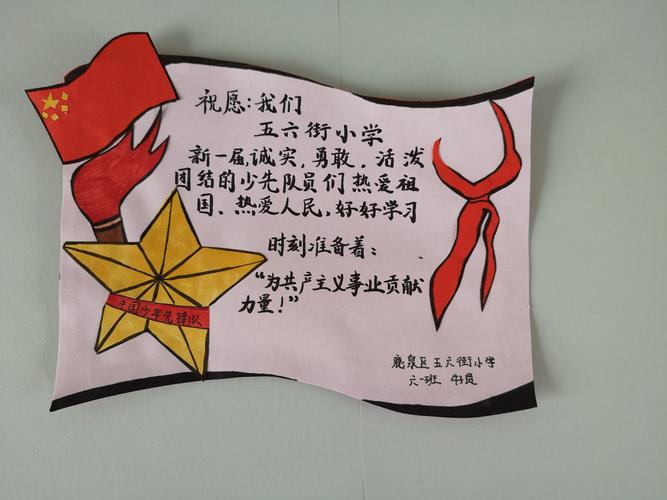 祝愿:我们
五六街小学
新一届,诚实,勇敢,活泼
团结的少先队员们热爱祖
国、热爱人民,好好学习
时刻准备着:
“为共产主义事业贡献
力量!”
中国少年先锋队
鹿泉区五六街小学
六一班